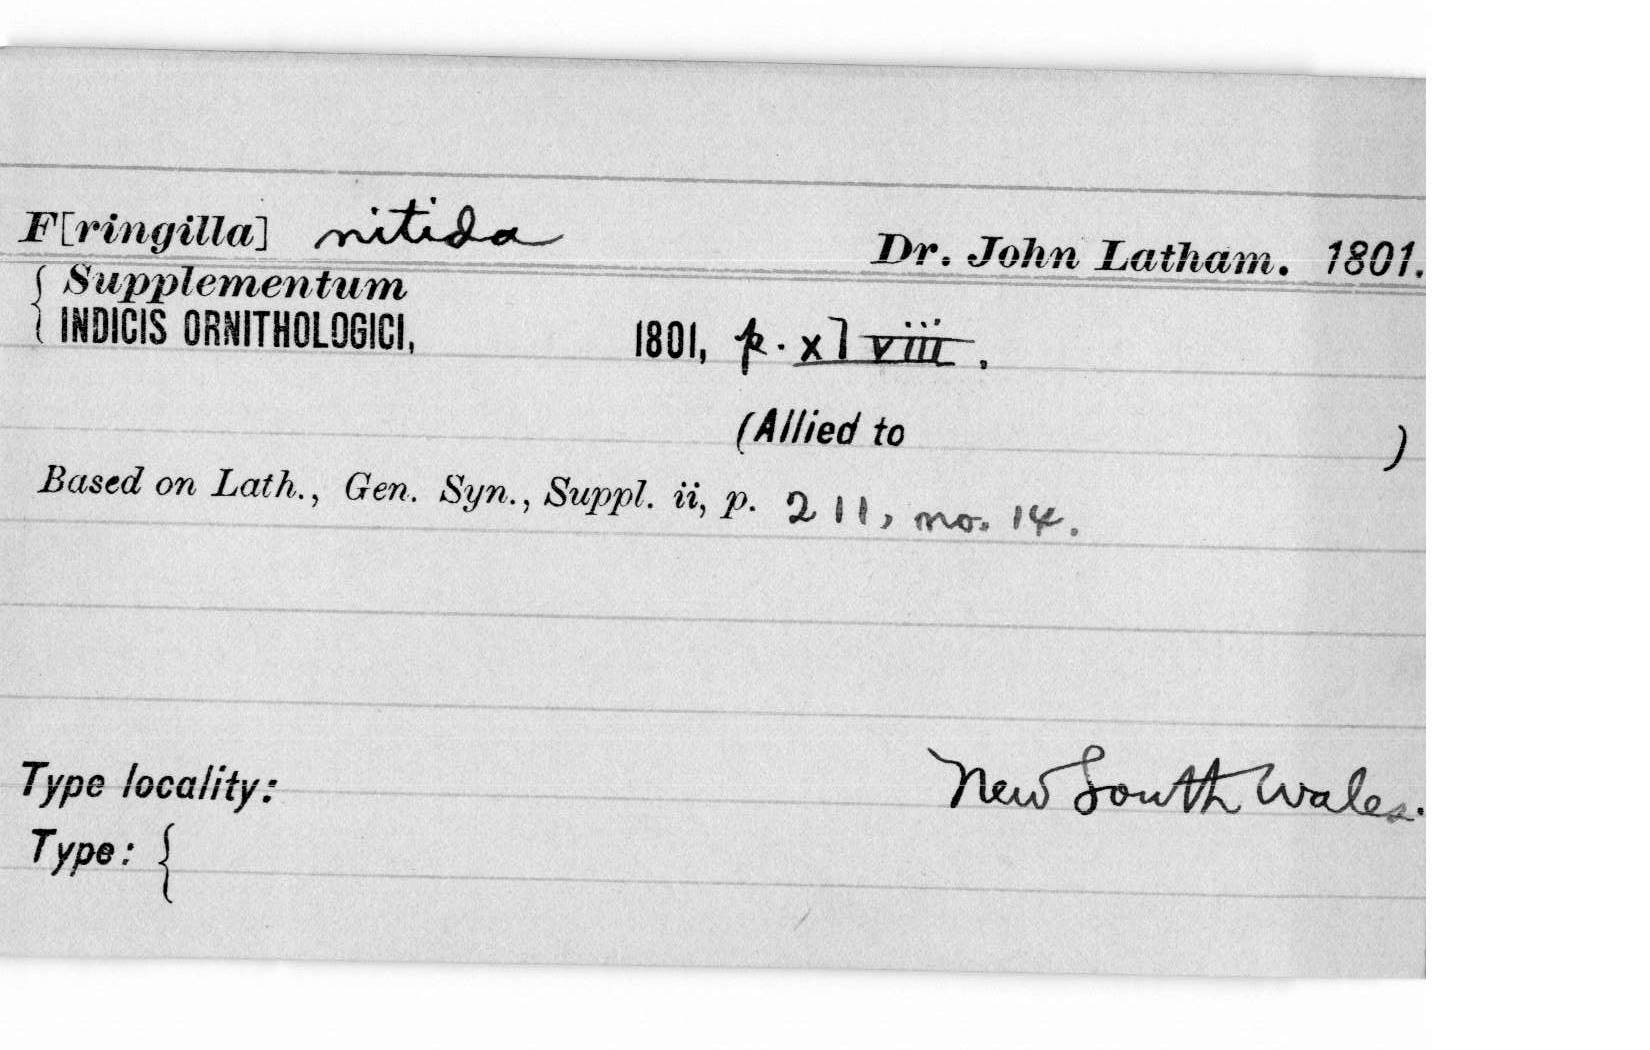 F[ringilla] nitida Dr. John Latham. 1801.
{ Supplementum
INDICIS ORNITHOLOGICI, 1801, p. xlviii.
(Allied to )
Based on Lath., Gen. Syn., Suppl. ii, p. 211, no. 14.
Type locality: New South Wales.
Type: {